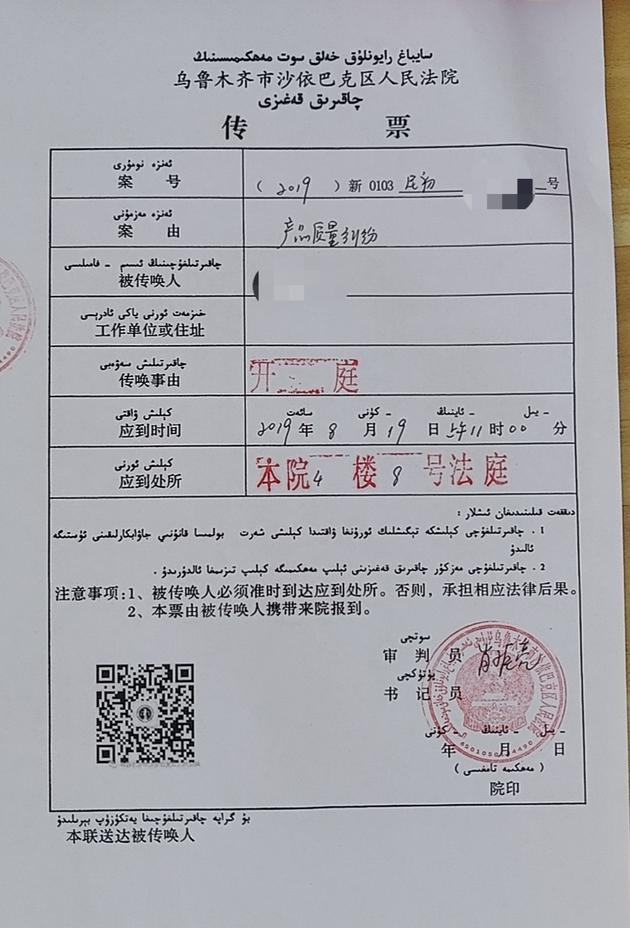 سايباغ رايونلۇق خەلق سوت مەھكىمىسىنىڭ
乌鲁木齐市沙依巴克区人民法院
چاقىرىق قەغىزى
传 票
ئەنزە نومۇرى
案 号
（2019）新 0103 民初 号
ئەنزە مەزمۇنى
案 由
产品质量纠纷
چاقىرتىلغۇچىنىڭ ئىسىم - فامىلىسى
被传唤人
خىزمەت ئورنى ياكى ئادرېسى
工作单位或住址
چاقىرتىلىش سەۋەبى
传唤事由
开 庭
كېلىش ۋاقتى
应到时间
- يىل - ئاينىڭ - كۈنى سائەت
2019 年 8 月 19 日 11 时 00 分
كېلىش ئورنى
应到处所
本院 4 楼 8 号法庭
دىققەت قىلىنىدىغان ئىشلار :
1 . چاقىرتىلغۇچى كېلىشكە تېگىشلىك ئورۇنغا ۋاقتىدا كېلىشى شەرت بولمىسا قانۇنىي جاۋابكارلىقىنى ئۈستىگە
ئالىدۇ
2 . چاقىرتىلغۇچى مەزكۇر چاقىرىق قەغىزىنى ئېلىپ مەھكىمىگە كېلىپ تىزىمغا ئالدۇرىدۇ .
注意事项:1、被传唤人必须准时到达应到处所。否则，承担相应法律后果。
2、本票由被传唤人携带来院报到。
سوتچى
审 判 员
پۈتۈكچى
书 记 员
- يىل - ئاينىڭ - كۈنى
年 月 日
( مەھكىمە تامغىسى )
院印
بۇ گىراپە چاقىرتىلغۇچىغا يەتكۈزۈپ بېرىلىدۇ
本联送达被传唤人